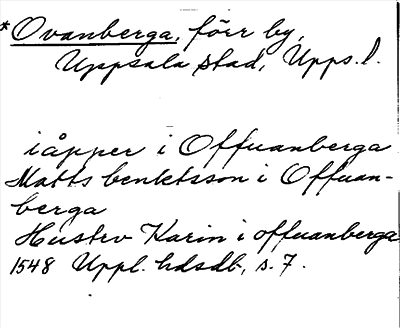 *Ovanberga, förr by,
Uppsala stad, Upps.l.
iåpper i Offuanberga
Matts benktsson i Offuan-
berga
Hustrv Karin i offuanberga
1548 Uppl. hdsdb, s. 7.